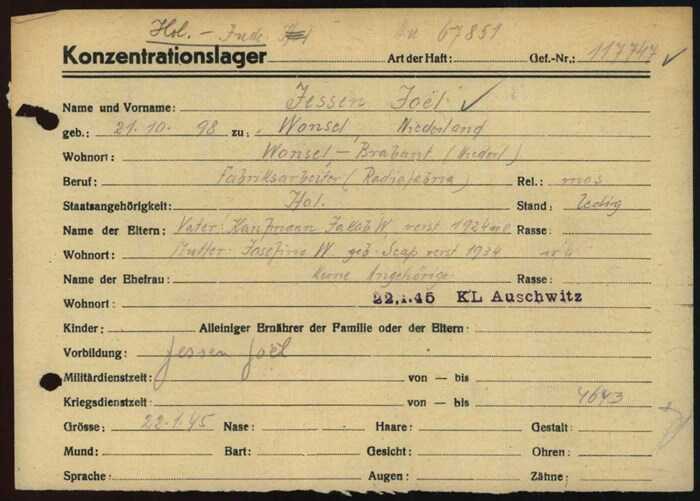 Hol. - Jude Au 67851
Konzentrationslager Art der Haft: Gef.-Nr.: 117747
Name und Vorname: Jessen Joël
geb.: 21.10.98 zu: Wonsel, Niederland
Wohnort: Wonsel - Brabant (Niederl)
Beruf: Fabriksarbeiter (Radiofabrik) Rel.: mos
Staatsangehörigkeit: Hol. Stand: ledig
Name der Eltern: Vater: Kaufmann Jakob W verst 1924 Rasse:
Wohnort: Mutter: Josefine W geb. verst 1934
Name der Ehefrau: keine Angehörige Rasse:
Wohnort: 22.1.45 KL Auschwitz
Kinder: Alleiniger Ernährer der Familie oder der Eltern:
Vorbildung: Jessen Joël
Militärdienstzeit: von — bis
Kriegsdienstzeit: von — bis 4643
Grösse: 22.1.45 Nase: Haare: Gestalt:
Mund: Bart: Gesicht: Ohren:
Sprache: Augen: Zähne: